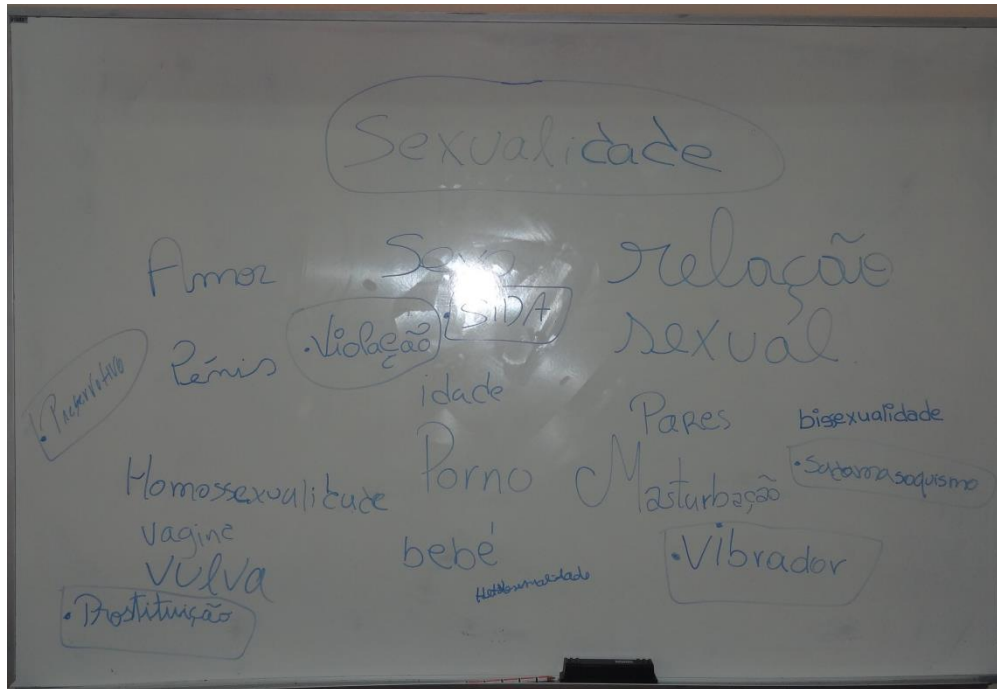 Sexualidade
Amor
Sexo
relação
sexual
• Violação
• SIDA
Pénis
• Preservativo
idade
Pares
bisexualidade
Homossexualidade
Porno
Masturbação
• Sadomasoquismo
vagina
vulva
bebé
• Vibrador
• Prostituição